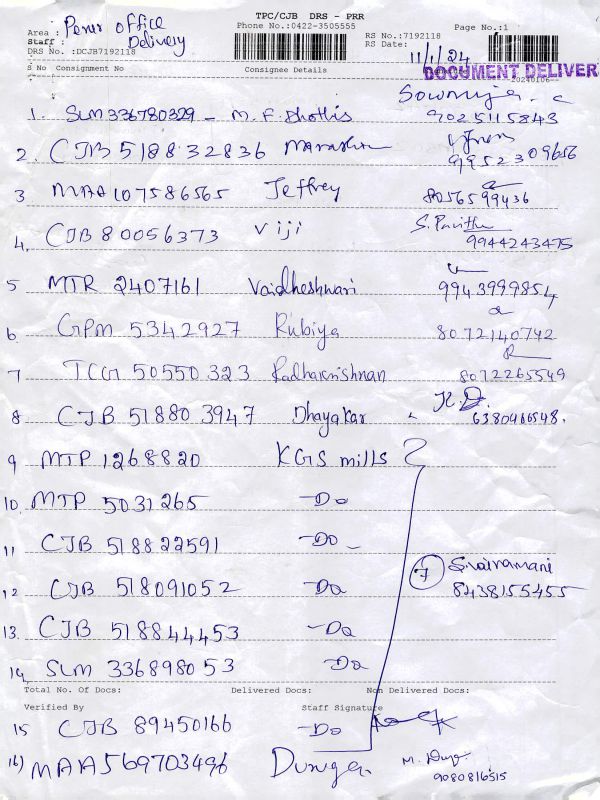 TPC/CJB DRS - PRR
Area : Perur office
Phone No.:0422-3505555
Page No.:1
Staff : Delivery
RS No.:7192118
DRS No. :DCJB7192118
RS Date: 11/1/24
DOCUMENT DELIVER
20240106
S No Consignment No Consignee Details
Sowmiya. c
1. SLM 336780329 - M. F. Bhothis 9025115843
2. CJB 518832836 99952309656
3 MAA 107586565 Jeffrey 8056599436
4. CJB 80056373 Viji S. Pavithra 9944243475
5 MTR 2407161 Vaidheshwari 9943999854
6 GPM 5342927 Rubiya 8072140742
7 TCG 50550323 Radhakrishnan 8072265549
8 CJB 518803947 Dhayakar K.D. 6380466548.
9 MTP 1268820 KGS mills
10 MTP 5031265 -Do
11 CJB 518822591 -Do-
Sivaramani
12 CJB 518091052 -Do 8438155455
13. CJB 518844453 -Do
14 SLM 336898053 -Do
Total No. Of Docs: Delivered Docs: Non Delivered Docs:
Verified By Staff Signature
15 CJB 89450166 -Do
16) MAA 569703496 Durugan M. Durga
9080816515